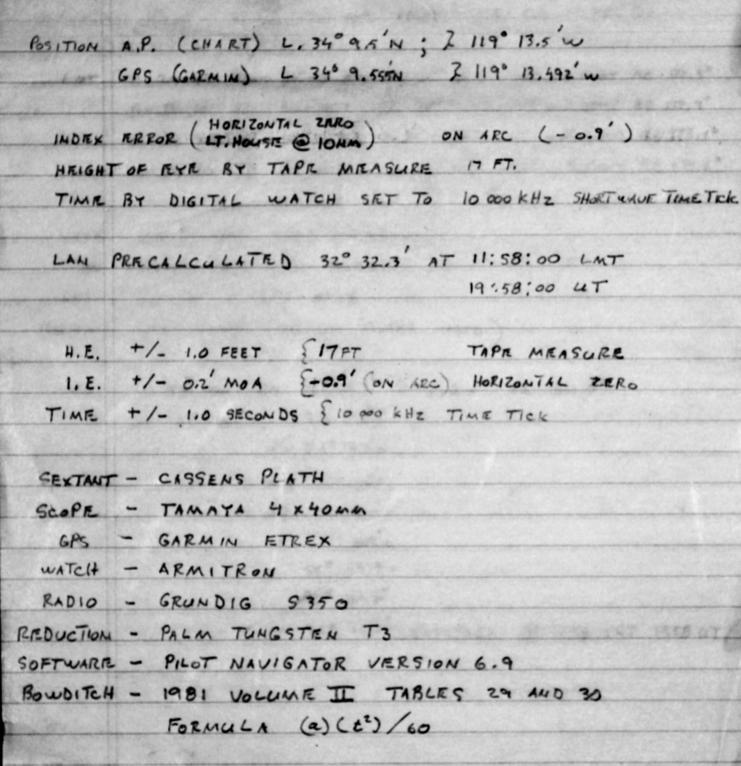 POSITION A.P. (CHART) L. 34° 9.5'N ; λ 119° 13.5'W
GPS (GARMIN) L 34° 9.555'N λ 119° 13.492'W
INDEX ERROR (HORIZONTAL ZERO LT. HOUSE @ 10NM) ON ARC (-0.9')
HEIGHT OF EYE BY TAPE MEASURE 17 FT.
TIME BY DIGITAL WATCH SET TO 10 000 kHz SHORTWAVE TIME TICK
LAN PRECALCULATED 32° 32.3' AT 11:58:00 LMT
19:58:00 UT
H.E. +/- 1.0 FEET {17FT TAPE MEASURE
I.E. +/- 0.2' MOA {-0.9' (ON ARC) HORIZONTAL ZERO
TIME +/- 1.0 SECONDS {10 000 kHz TIME TICK
SEXTANT - CASSENS PLATH
SCOPE - TAMAYA 4x40mm
GPS - GARMIN ETREX
WATCH - ARMITRON
RADIO - GRUNDIG S350
REDUCTION - PALM TUNGSTEN T3
SOFTWARE - PILOT NAVIGATOR VERSION 6.9
BOWDITCH - 1981 VOLUME II TABLES 29 AND 30
FORMULA (a)(t²)/60